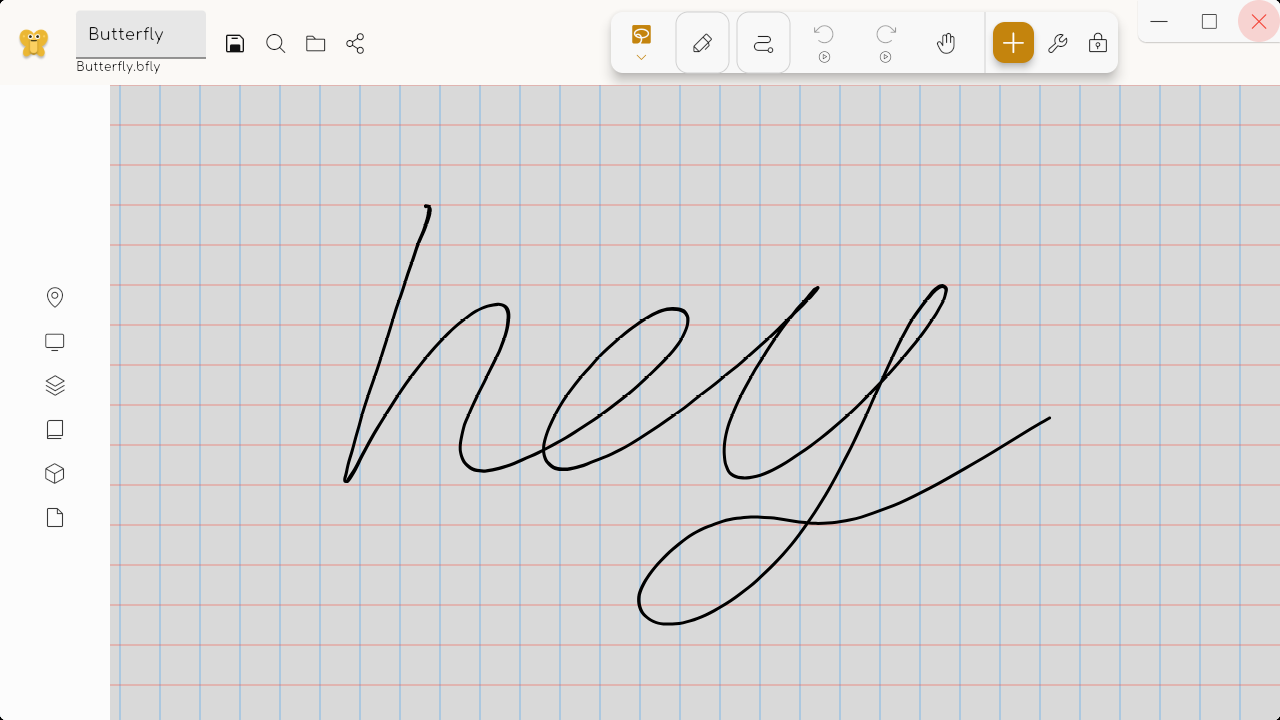 Butterfly
Butterfly.bfly
hey